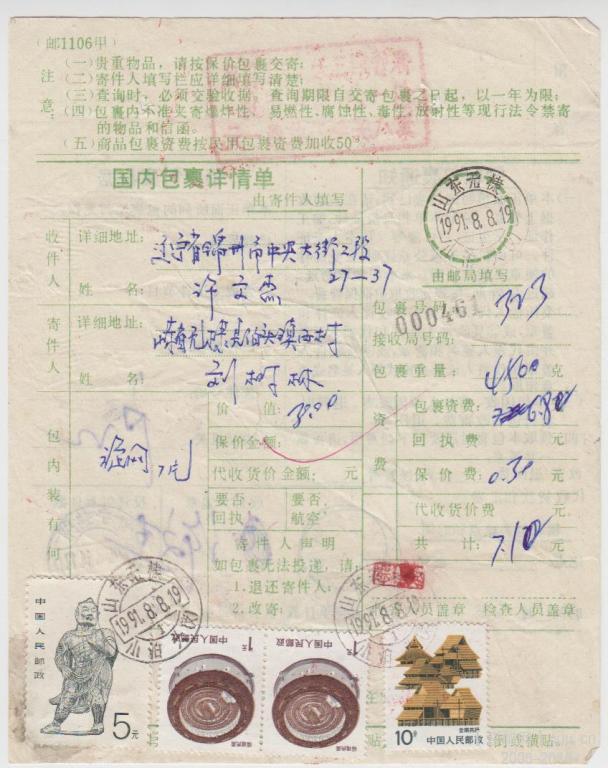 （邮1106甲）
注意：
（一）贵重物品，请按保价包裹交寄：
（二）寄件人填写拦应详细填写清楚：
（三）查询时，必须交验收据。查询期限自交寄包裹之日起，以一年为限；
（四）包裹内不准夹寄爆炸性、易燃性、腐蚀性、毒性、放射性等现行法令禁寄
的物品和信函。
（五）商品包裹资费按民用包裹资费加收50%
国内包裹详情单
由寄件人填写
山东无棣
1991.8.8.19
由邮局填写
收件人
详细地址：
辽宁省锦州市中央大街二段
27—37
姓名：
许文杰
寄件人
详细地址：
姓名：
刘树林
包裹号码：
323
000461
接收局号码：
包裹重量：
4500
克
价值：
30.00
保价金额：
代收货价金额：
元
资费
包裹资费：
6.80
元
回执费
元
保价费：
0.30
元
代收货价费
元
共计：
7.10
元
包内装有何
要否回执
要否航空
寄件人声明
如包裹无法投递，请：
1.退还寄件人：
2.改寄：
人员盖章
检查人员盖章
山东无棣
1991.8.8.19
中国人民邮政
5元
1元
中国人民邮政
1元
中国人民邮政
10分
中国人民邮政
倒或横贴